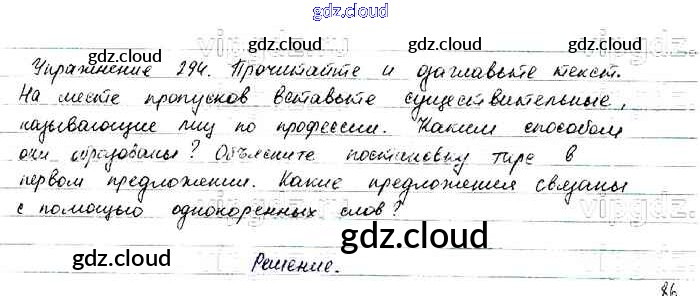 gdz.cloud
gdz.cloud gdz.cloud gdz.cloud
Упражнение 294. Прочитайте и озаглавьте текст.
На месте пропусков вставьте существительные,
называющие лиц по профессии. Каким способом
они образованы? Объясните постановку тире в
первом предложении. Какие предложения связаны
с помощью однокоренных слов?
gdz.cloud
gdz.cloud Решение. gdz.cloud
86